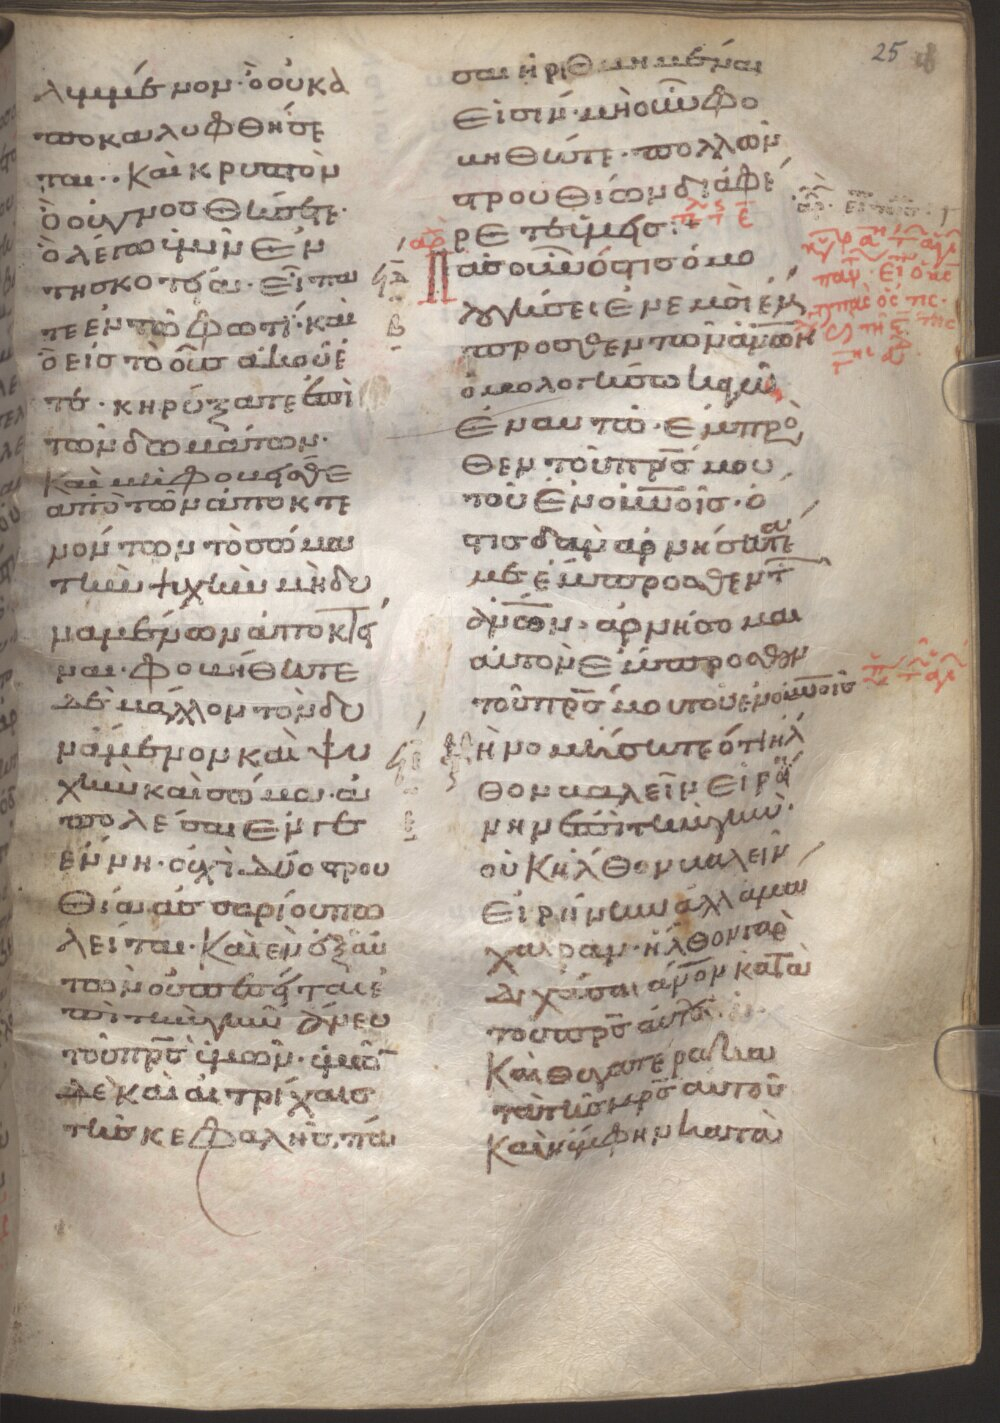 25
λυμμένον· ὃ οὐκ ἀ
ποκαλυφθήσε
ται·· Καὶ κρυπτὸν
ὃ οὐ γνοσθήσετε·
ὃ λέγω ὑμῖν ἐν
τῇ σκοτία· εἴπα
τε ἐν τῷ φωτί· καὶ
ὃ εἰς τὸ οὖς ἀκούε
τε· κηρύξατε ἐπὶ
τῶν δωμάτων·
Καὶ μὴ φοβῆσθε
ἀπὸ τῶν ἀποκτε
νόντων τὸ σῶμα
τὴν ψυχὴν μὴ δυ
ναμένων ἀποκτῆ
ναι· φοβήθητε
δὲ μᾶλλον τὸν δυ
νάμενον καὶ ψυ
χὴν καὶ σῶμα· ἀ
πολέσαι ἐν γε
έννη· οὐχὶ δύο στρου
θία ἀσσαρίου πω
λεῖται· Καὶ ἓν ἐξ αὐ
τῶν οὐ πεσῆται ἐ
πὶ τὴν γῆν ἄνευ
τοῦ πρς ὑμῶν· ὑμῶ
δὲ καὶ αἱ τρίχαις
τῆς κεφαλῆς, πᾶ
σαι ἠριθμημέναι
εἰσίν· μὴ οὖν φο
βηθῆτε· πολλῶν
στρουθίων διαφέ
ρετε ὑμῆς·
Πᾶς οὖν ὅστις ὁμο
λογήσει ἐν ἐμοὶ ἔμ
προσθεν τῶν ἀνων
ὁμολογήσω κἀγὼ
ἐν αὐτῷ· ἔμπρο
θεν τοῦ πρς μου
τοῦ ἐν οὐνοῖς· ὅ
στις δ' ἂν ἀρνήσηταί
με ἔμπροσθεν τ
ἀνων· ἀρνήσομαι
αὐτὸν ἔμπροσθεν
τοῦ πρς μου τοῦ ἐν οὐνοῖς
Μὴ νομήσητε ὅτι ἦλ
θον βαλεῖν εἰρή
νην ἐπὶ τὴν γῆν·
οὐκ ἦλθον βαλεῖν
εἰρήνην ἀλλὰ μά
χαιραν· ἦλθον γὰρ
διχάσαι ἄνον κατὰ
τοῦ πρς αὐτοῦ
Καὶ θυγατέρα κα
τὰ τῆς μρς αὐτοῦ
Καὶ νύμφην κατὰ